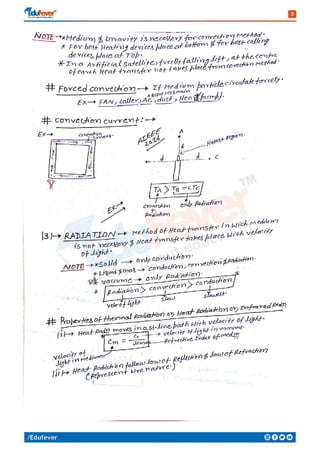 Edufever
3
NOTE → *Medium & Gravity is necessary for convection method.
* For best Heating devices place at bottom & for best calling
devices place at Top.
* In a Artificial Satellite, freelly falling lift, at the centre
of earth Heat transfer not takes place from convection Method.
# Forced convection → If medium particle circulate forcely.
Ex → FAN, coller, Ac, duct, Heart pump
# convection current: →
Ex →
convection currents.
AIEEE
A
Hottest Region.
B
d
d
C
TA > TB = TC
Ex →
convection
Radiation
only Radiation
TM
|3|→ RADIATION → Method of Heat transfer in which medium
is not necessary & Heat transfer takes place with velocity
of light.
NOTE → *Solid → only conduction.
* Liquid & gas → conduction, convection & Radiation.
* vaccume → only Radiation.
* Radiation > convection > conduction
veloc of light
slow
slowest.
# Properties of thermal Radiation or Heat Radiation or Infrared Radn
|i|→ Heat Radn moves in a st. line path with velocity of light.
Cm =
→ velocity of light in vaccume
→ Refractive Index of medium
velocity of
light in medium
|ii|→ Heat Radiation follow low of Reflection & low of Refraction
(Represcent wave nature)
/Edufever